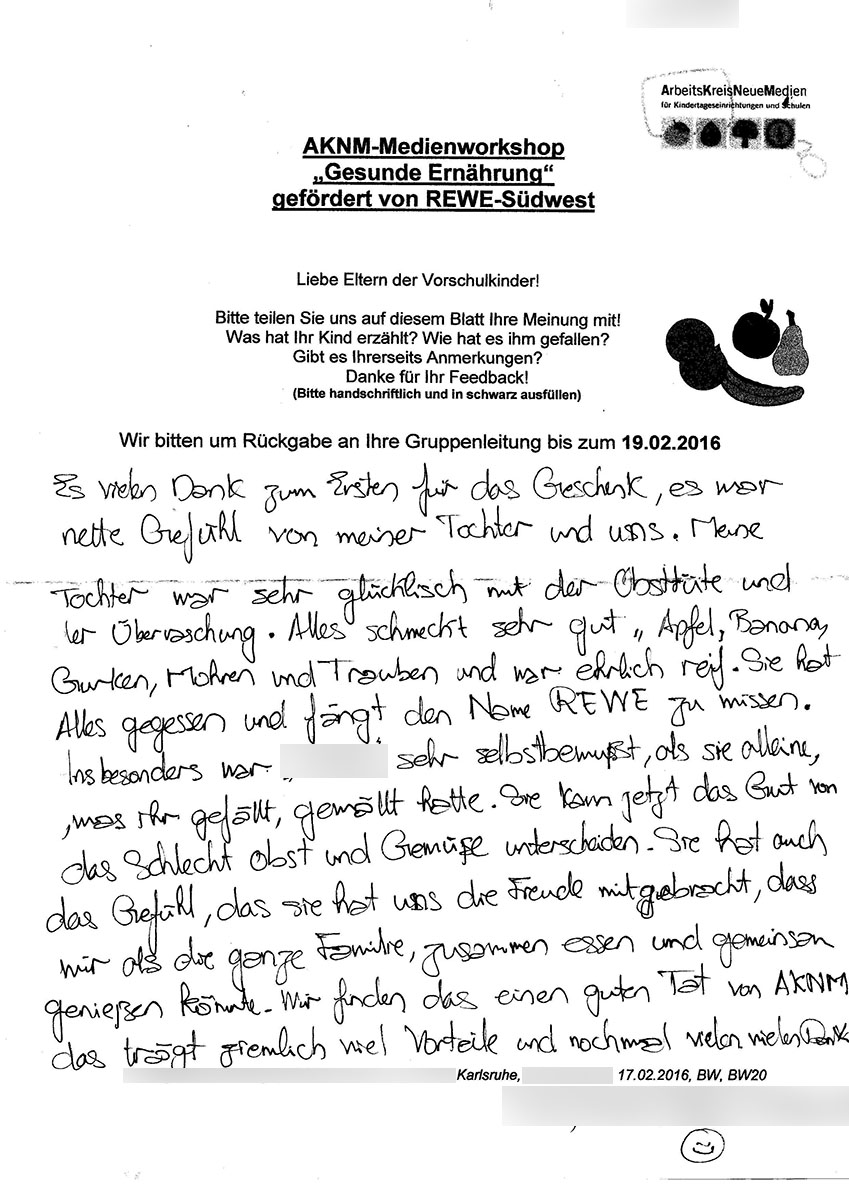 ArbeitsKreisNeueMedien
für Kindertageseinrichtungen und Schulen
AKNM-Medienworkshop
„Gesunde Ernährung“
gefördert von REWE-Südwest
Liebe Eltern der Vorschulkinder!
Bitte teilen Sie uns auf diesem Blatt Ihre Meinung mit!
Was hat Ihr Kind erzählt? Wie hat es ihm gefallen?
Gibt es Ihrerseits Anmerkungen?
Danke für Ihr Feedback!
(Bitte handschriftlich und in schwarz ausfüllen)
Wir bitten um Rückgabe an Ihre Gruppenleitung bis zum 19.02.2016
Es vielen Dank zum Ersten für das Geschenk, es war
nette Gefühl von meiner Tochter und uns. Meine
Tochter war sehr glücklisch mit der Obsttüte und
der Überraschung. Alles schmeckt sehr gut „ Apfel, Banana,
Gurken, Mohren und Trauben und war ehrlich reif. Sie hat
Alles gegessen und fängt den Name REWE zu wissen.
Insbesonders war „ “ sehr selbstbewußt, als sie alleine,
was ihr gefällt, gewällt hatte. Sie kann jetzt das Gut von
das Schlecht Obst und Gemüße unterscheiden. Sie hat auch
das Gefühl, das sie hat uns die Freude mitgebracht, dass
wir als die ganze Familie, zusammen essen und gemeinsam
genießen könnte. Wir finden das einen guten Tat von AKNM
das trägt ziemlich viel Vorteile und nochmal vielen vielen Dank
Karlsruhe, 17.02.2016, BW, BW20